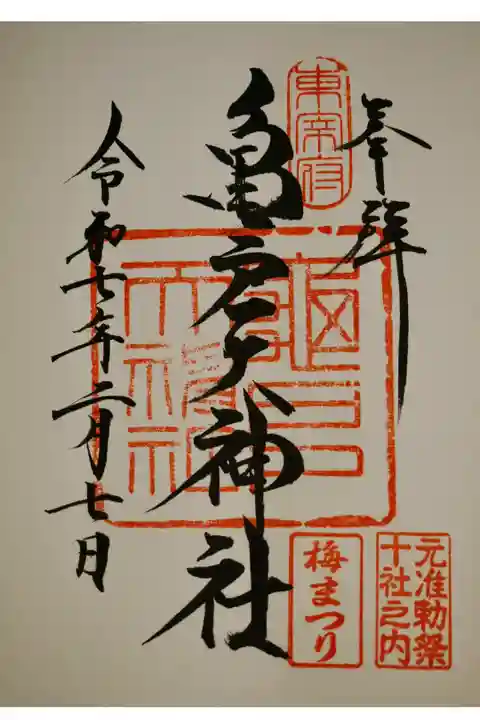 奉拝
東宰府
亀戸天神社
亀戸天神社
令和七年二月七日
元准勅祭
十社之内
梅まつり